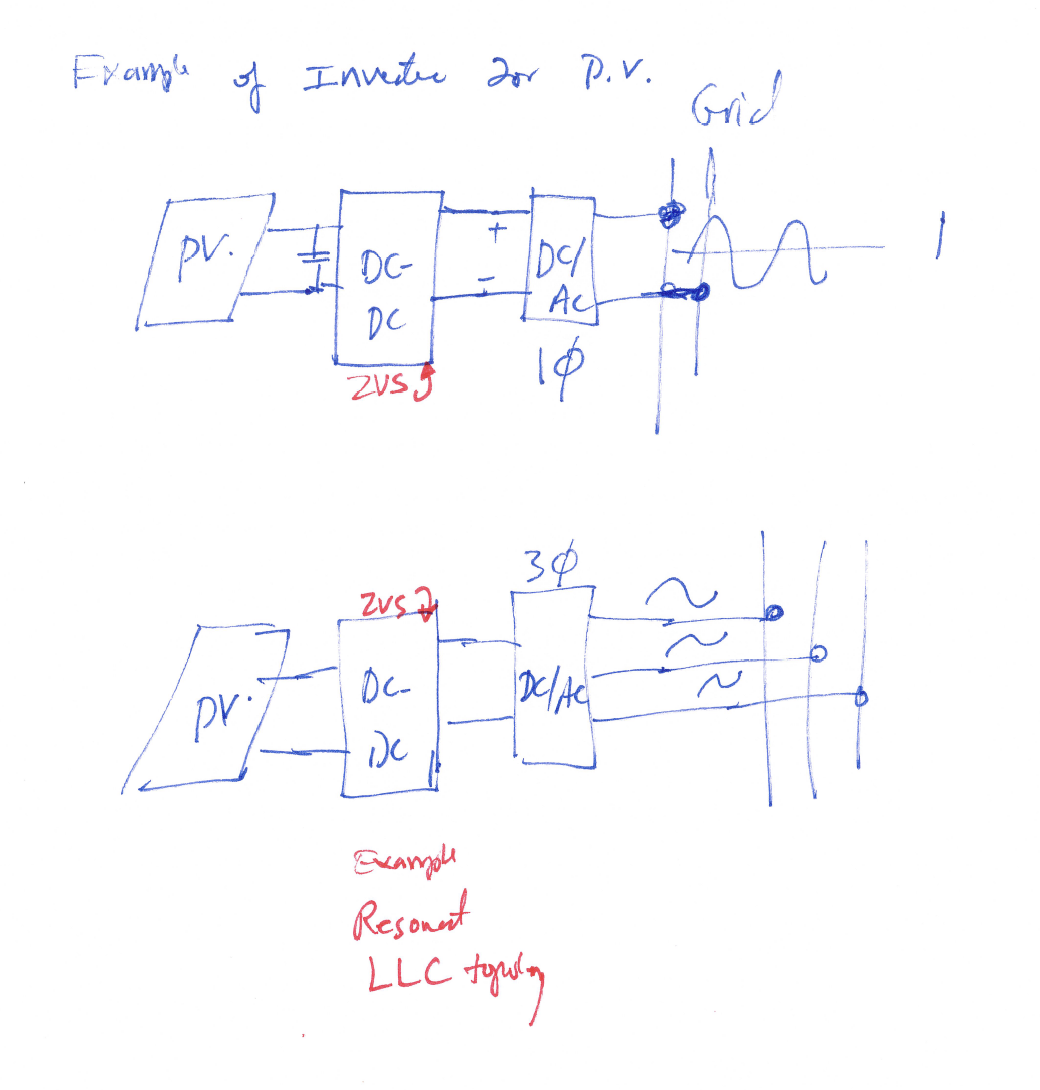 Example of Inverter for P.V.
Grid
PV.
DC-
DC
+
-
DC/
AC
ZVS
1φ
3φ
ZVS
PV.
DC-
DC
DC/AC
Example
Resonant
LLC topology